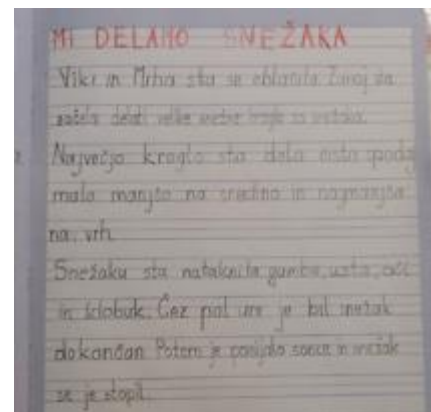 MI DELAMO SNEŽAKA
Viki in Miha sta se oblačila. Zunaj sta
začela delati velike snežne krogle za snežaka.
Največjo kroglo sta dala čisto spodaj
malo manjšo na sredino in najmanjšo
na vrh.
Snežaku sta nataknila gumbe, usta, oči
in klobuk. Čez pol ure je bil snežak
dokončan. Potem je posijalo sonce in snežak
se je stopil.